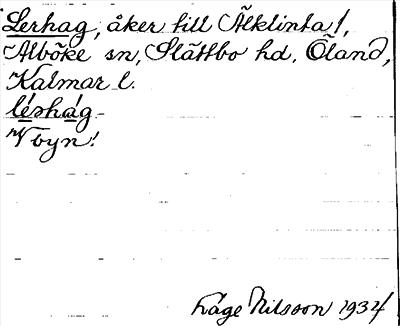 Lerhag, åker till Älklinta 1,
Alböke sn, Slättbo hd, Öland,
Kalmar l.
lérhág
N byn!
Håge Nilsson 1934